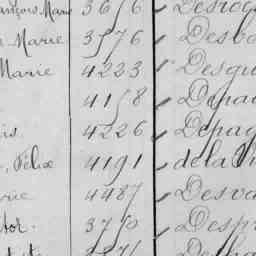 ançois Marie 3616 Desro
Marie 3576 Desb
Marie 4223 Desqu
4158 Depa
is 4226 Depag
, Félix 4191 de la Ch
rie 4487 Desva
tor. 3710 Despr